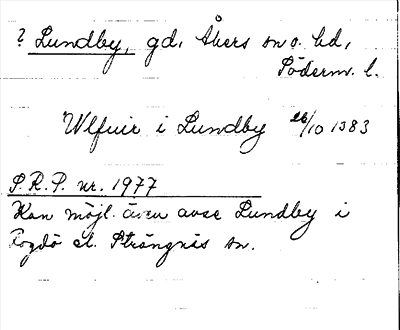 ? Lundby, gd, Åkers sn o. hd,
Söderm. l.
Ulfuir i Lundby 26/10 1383
S.R.P. nr. 1977
Kan möjl. även avse Lundby i
Fogdö el. Strängnäs sn.